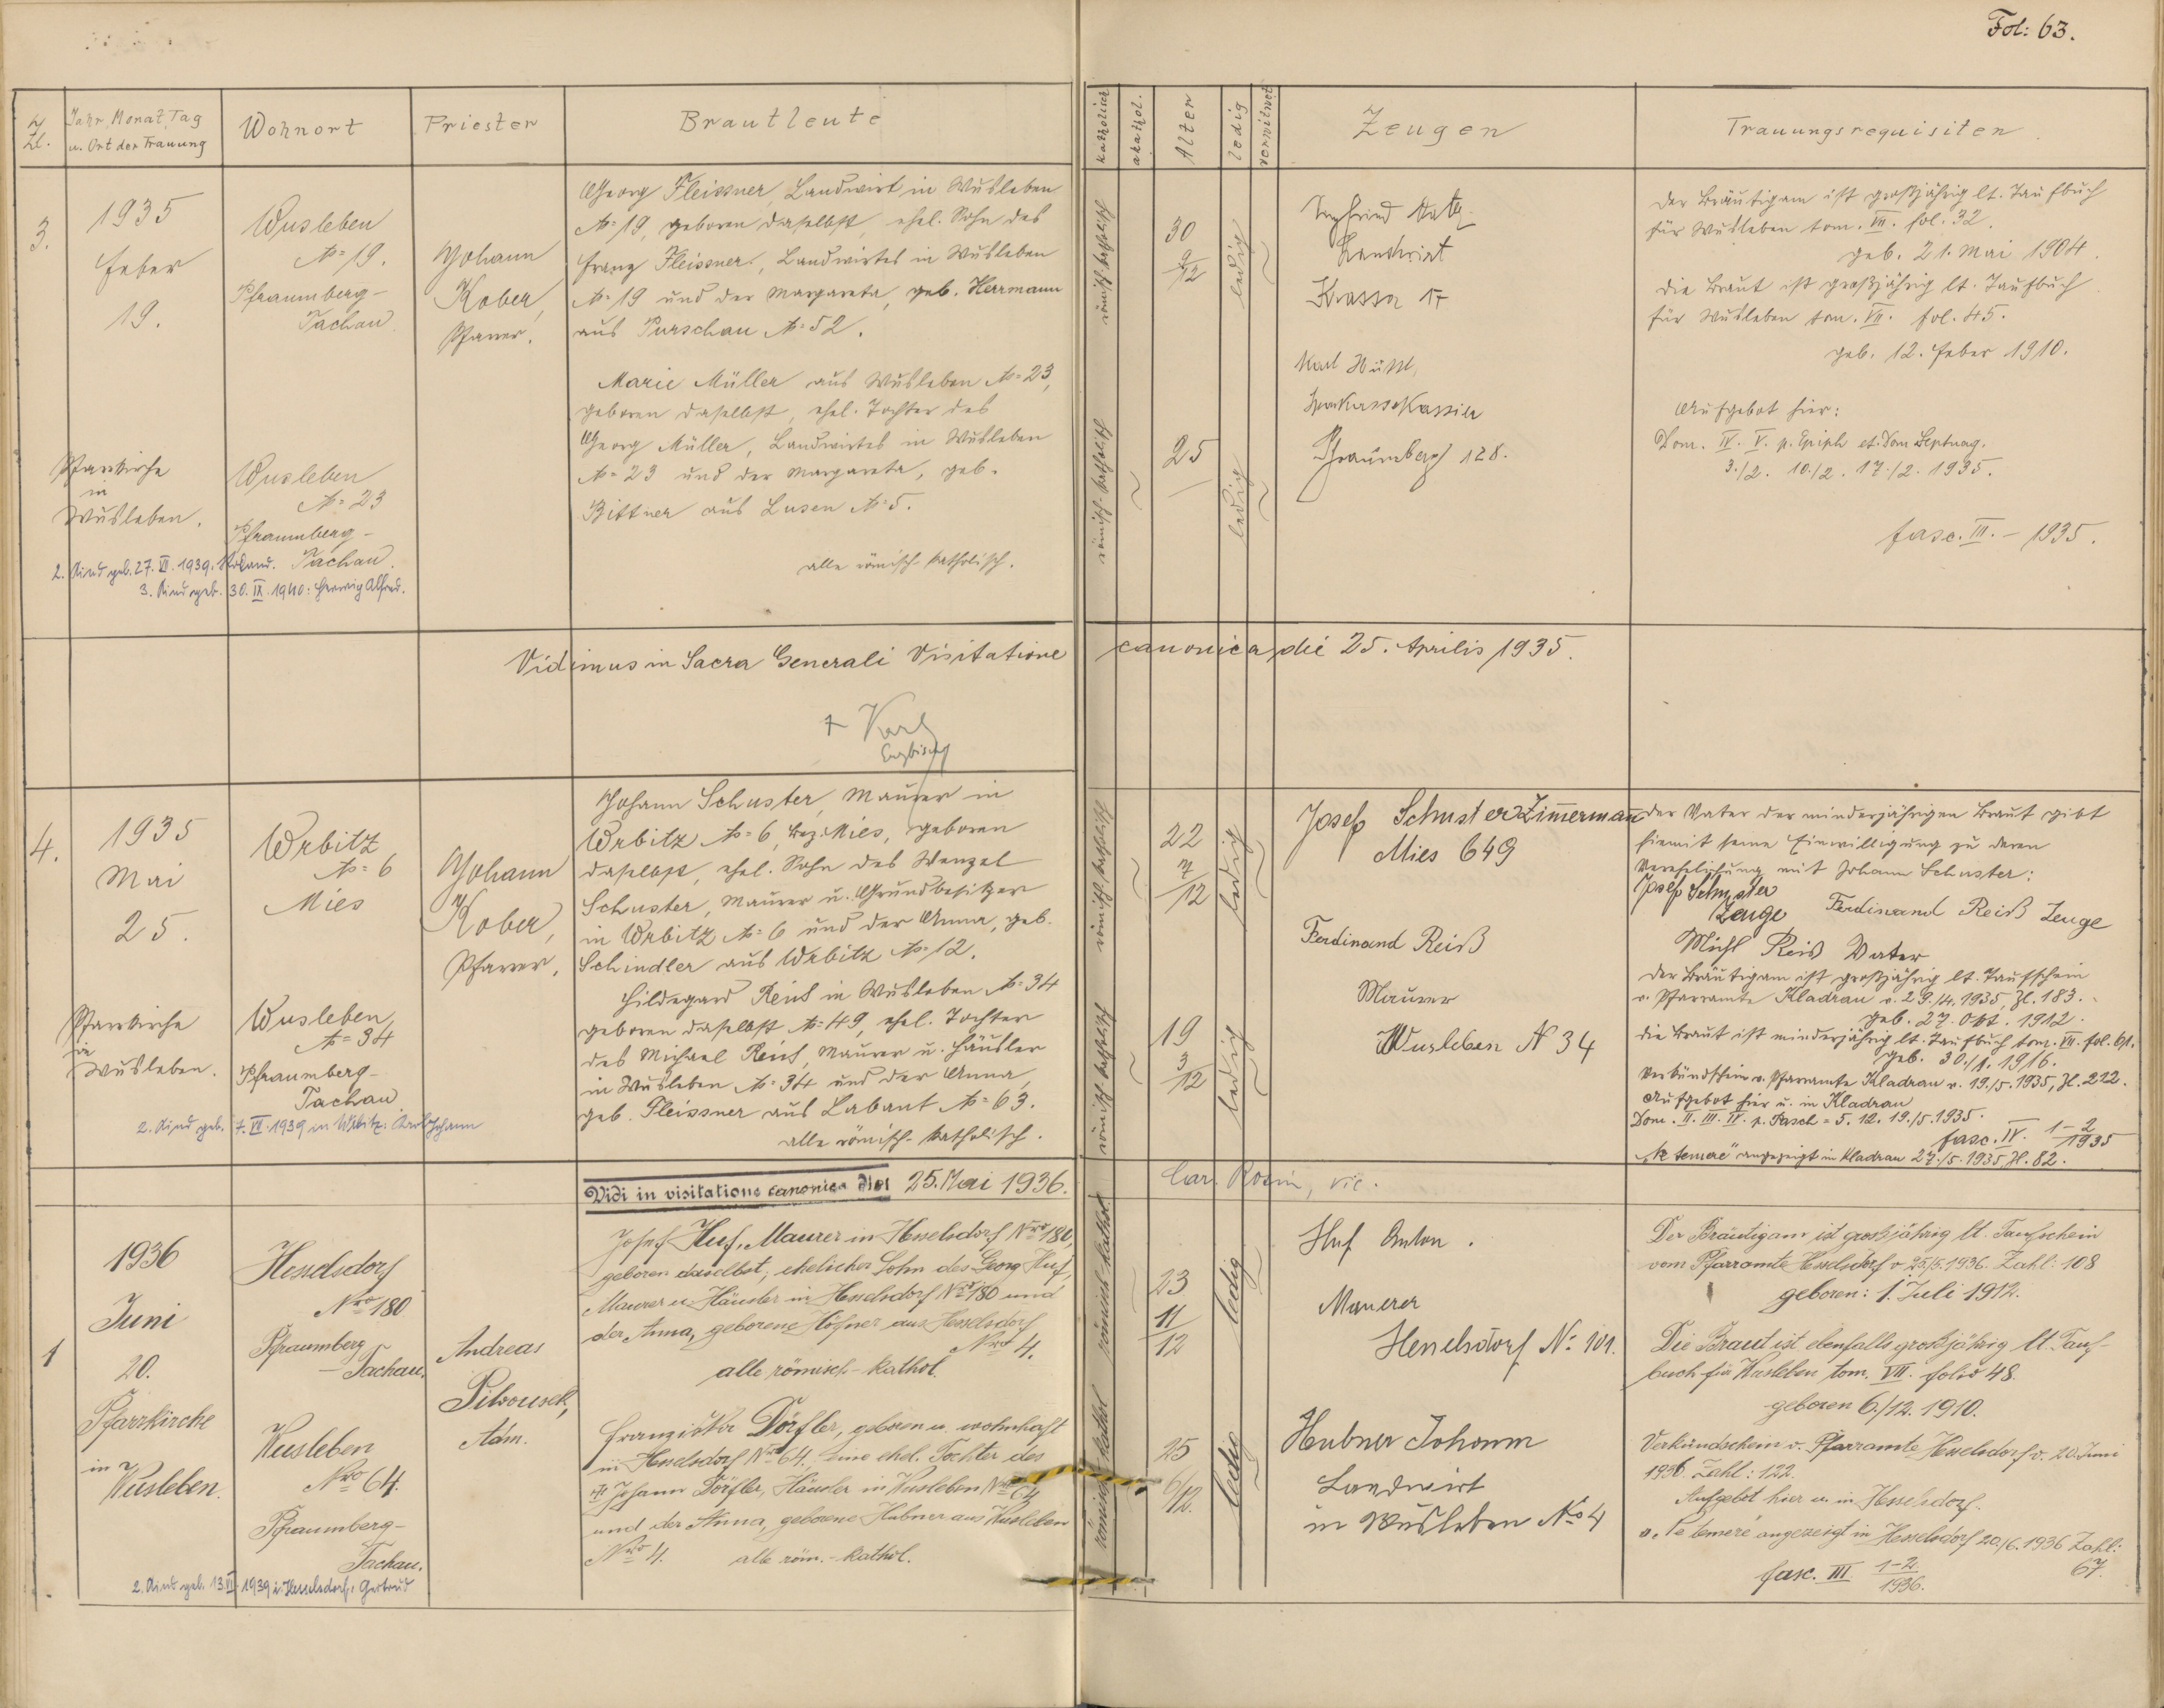 Fol: 63.
Z. Zl.
Jahr, Monat, Tag
u. Ort der Trauung
Wohnort
Priester
Brautleute
katholisch
akathol.
Alter
ledig
verwitwet
Zeugen
Trauungsrequisiten
3.
1935
Feber
19.
Pfarrkirche
in
Wusleben.
Wusleben
№ 19.
Pfraumberg-
Tachau.
Wusleben
№ 23
Pfraumberg-
Tachau.
2. Kind geb. 27. VI. 1939. Roland.
3. Kind geb. 30. IX. 1940: Herwig Alfred.
Johann
Kober,
Pfarrer.
Georg Fleissner, Landwirt in Wusleben
№ 19, geboren daselbst, ehel. Sohn des
Franz Fleissner, Landwirtes in Wusleben
№ 19 und der Margareta, geb. Herrmann
aus Purschau № 52.
Marie Müller aus Wusleben № 23,
geboren daselbst, ehel. Tochter des
Georg Müller, Landwirtes in Wusleben
№ 23 und der Margareta, geb.
Bittner aus Lusen № 5.
alle römisch-katholisch.
römisch-katholisch
30
9/12
ledig
römisch-katholisch
25
ledig
Landwirt
17
Karl
Pfraumberg 128.
Der Bräutigam ist großjährig lt. Taufbuch
für Wusleben tom. VII. fol. 32.
geb. 21. Mai 1904.
Die Braut ist großjährig lt. Taufbuch
für Wusleben tom. VII. fol. 45.
geb. 12. Feber 1910.
Aufgebot hier:
Dom. IV. V. p. Epiph et. Dom Septuag.
3./2. 10./2. 17./2. 1935.
fasc. III. – 1935.
Vidimus in Sacra Generali Visitatione canonica die 25. Aprilis 1935.
+ Karl
Erzbischof
4.
1935
Mai
25.
Pfarrkirche
in
Wusleben.
Wrbitz
№ 6
Mies
Wusleben
№ 34
Pfraumberg-
Tachau
2. Kind geb. 7. VII. 1939 in Wrbitz: Karl Johann
Johann
Kober,
Pfarrer.
Johann Schuster, Maurer in
Wrbitz № 6, Bez. Mies, geboren
daselbst, ehel. Sohn des Wenzel
Schuster, Maurer u. Grundbesitzer
in Wrbitz № 6 und der Anna, geb.
Schindler aus Wrbitz № 12.
Hildegard Reiß in Wusleben № 34
geboren daselbst № 49, ehel. Tochter
des Michael Reiß, Maurer u. Häusler
in Wusleben № 34 und der Anna,
geb. Fleissner aus Labant № 63.
alle römisch-katholisch.
römisch-katholisch
22
7/12
ledig
römisch-katholisch
19
3/12
ledig
Josef Schuster Zimmerman
Mies 649
Ferdinand Reiß
Maurer
Wusleben N 34
Der Vater der minderjährigen Braut gibt
hiemit seine Einwilligung zu deren
Verehelichung mit Johann Schuster:
Josef Schuster
Zeuge Ferdinand Reiß Zeuge
Michl Reiß Vater
Der Bräutigam ist großjährig lt. Taufschein
v. Pfarramte Kladrau v. 29./4. 1935, Zl. 183.
geb. 27. Okt. 1912.
Die Braut ist minderjährig lt. Taufbuch tom. VII. fol. 61.
geb. 30./1. 1916.
Verkündschein v. Pfarramte Kladrau v. 19./5. 1935, Zl. 212.
Aufgebot hier u. in Kladrau
Dom. II. III. IV. p. Pasch = 5. 12. 19./5. 1935.
fasc. IV. 1-2/1935
„Ne temere" angezeigt in Kladrau 27./5. 1935, Zl. 82.
Vidi in visitatione canonica diei 25. Mai 1936.
Car. Rosin, vic.
1
1936
Juni
20.
Pfarrkirche
in
Wusleben.
Hesselsdorf
Nro 180
Pfraumberg
-Tachau.
Wusleben
Nro 64.
Pfraumberg-
Tachau.
2. Kind geb. 13. VI. 1939 i. Hesselsdorf: Gertrud
Andreas
Pilsousek,
Adm.
Josef Huf, Maurer in Hesselsdorf Nro 180,
geboren daselbst, ehelicher Sohn des Georg Huf,
Maurer u. Häusler in Hesselsdorf Nro 180 und
der Anna, geborene Höfner aus Hesselsdorf
Nro 4.
alle römisch-kathol.
Franziska Dörfler, geboren u. wohnhaft
in Hesselsdorf Nro 64, eine ehel. Tochter des
Johann Dörfler, Häusler in Wusleben Nro 64
und der Anna, geborene Hubner aus Wusleben
Nro 4. alle röm.-kathol.
römisch-kathol.
23
11/12
ledig
römisch-kathol
25
6/12.
ledig
Huf Anton.
Mauerer
Heselsdorf No 101.
Hubner Johann
Landwirt
in Wusleben No 4
Der Bräutigam ist großjährig lt. Taufschein
vom Pfarramte Hesselsdorf v. 25./5. 1936. Zahl: 108
geboren: 1. Juli 1912.
Die Braut ist ebenfalls großjährig lt. Tauf-
buch für Wusleben tom. VII. folio 48.
geboren 6./12. 1910.
Verkündschein v. Pfarramte Hesselsdorf v. 20. Juni
1936. Zahl: 122.
Aufgebot hier u. in Hesselsdorf.
„Ne temere" angezeigt in Hesselsdorf 20./6. 1936 Zahl:
67.
fasc. III 1-2/1936.